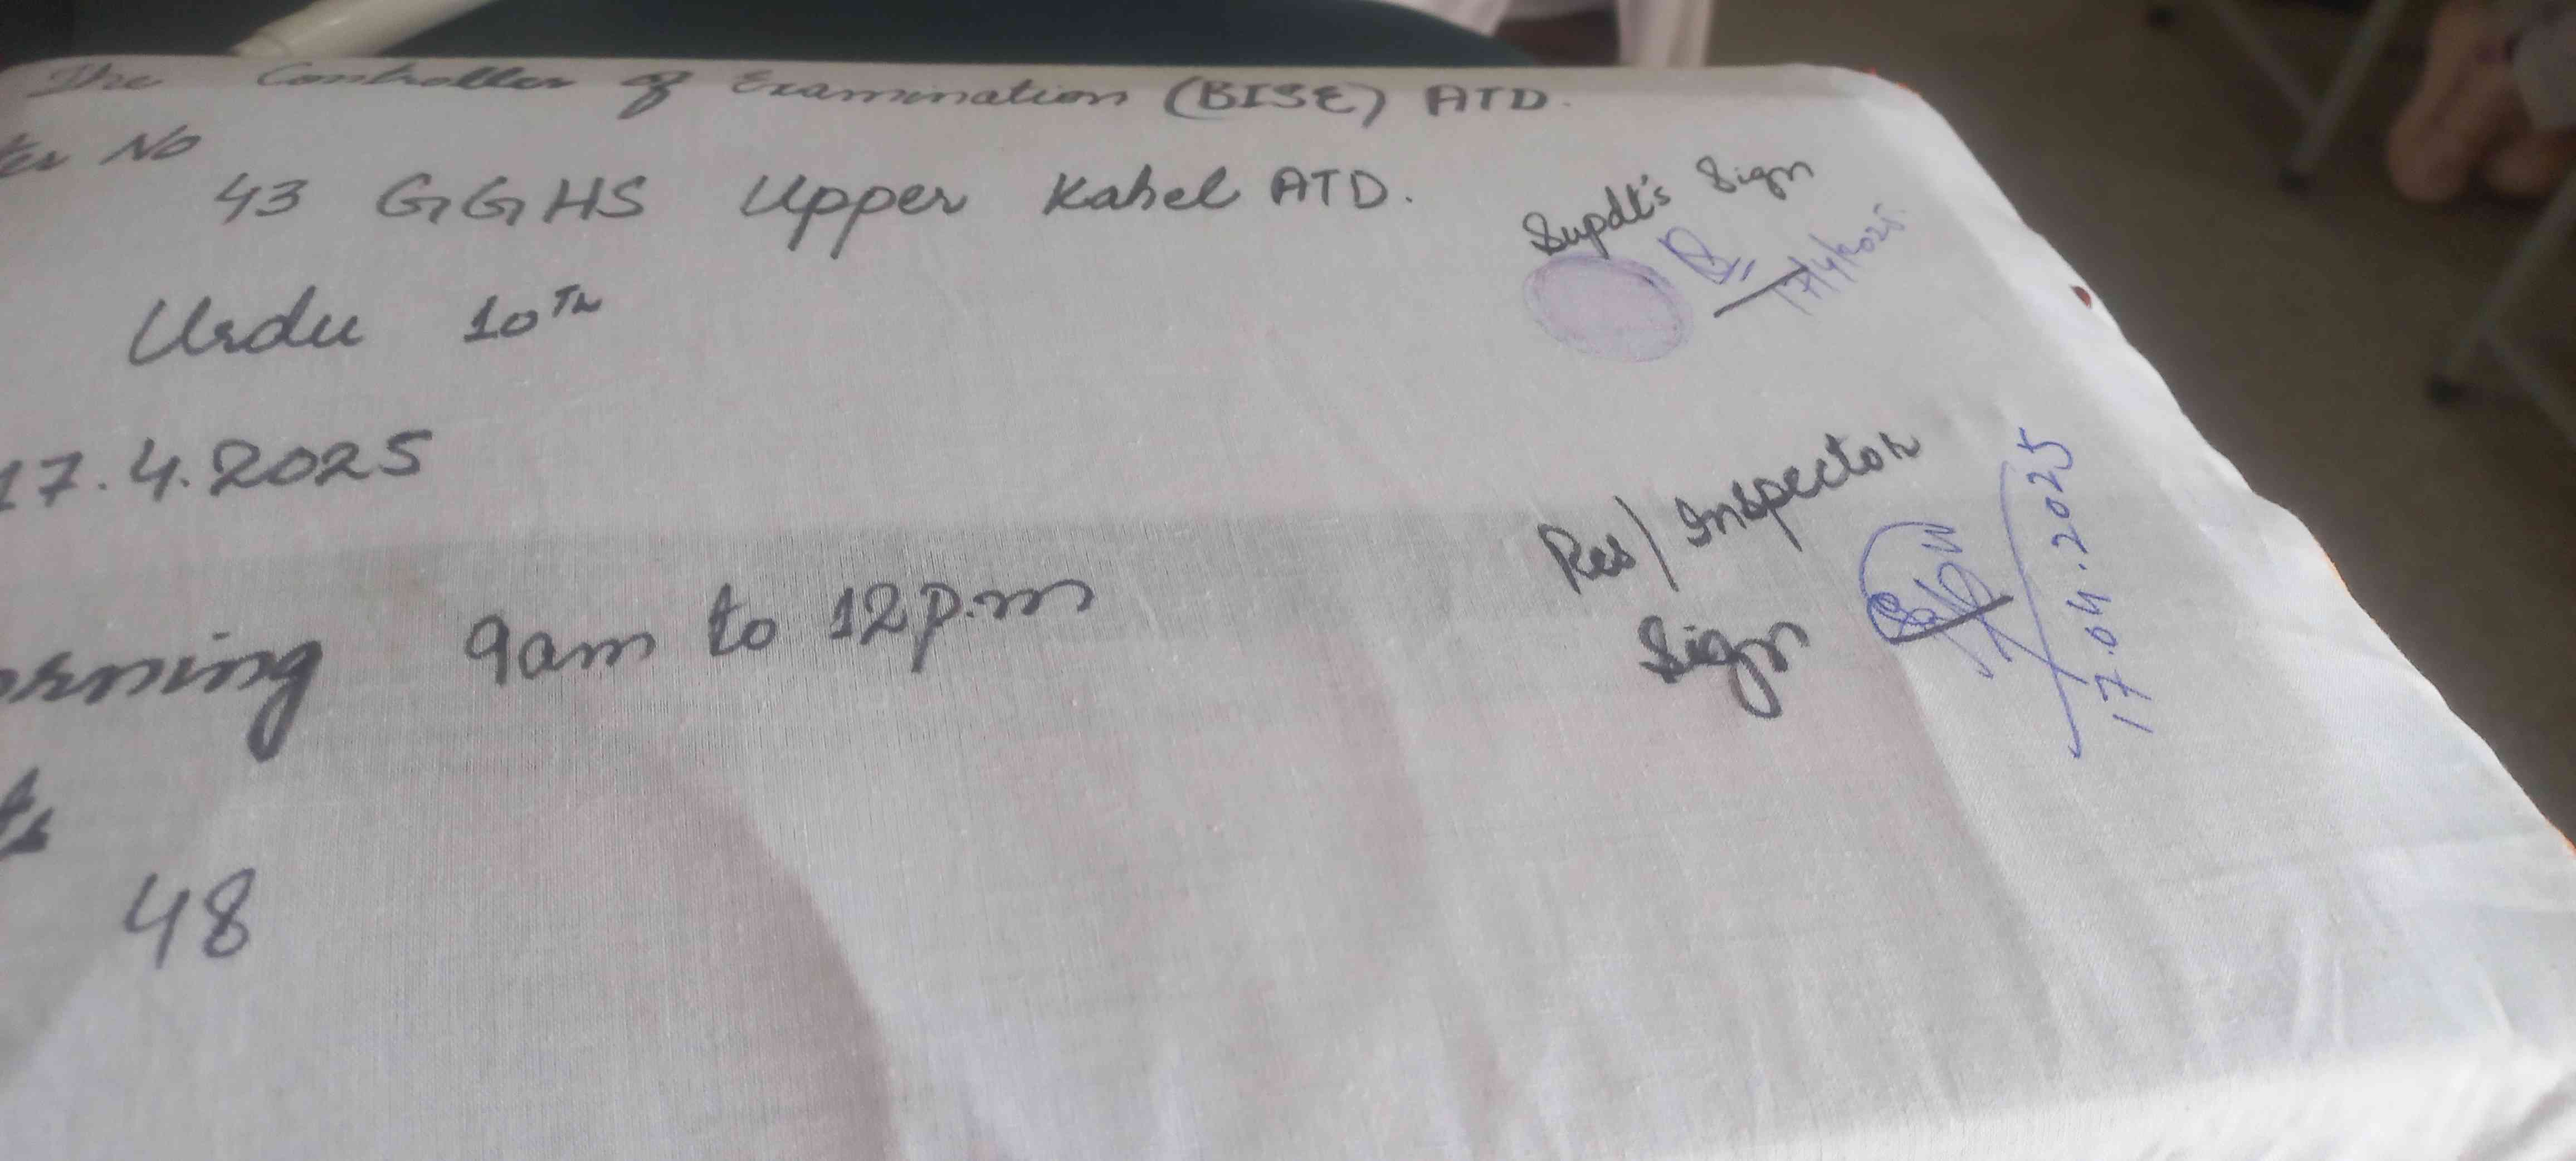 The Controller of Examination (BISE) ATD.
ter No
43 GGHS Upper Kahel ATD.
Urdu 10Th
17.4.2025
orning 9am to 12p.m
ts
48
Supdt's Sign
17/4/2025
Res/Inspector
Sign
17.04.2025